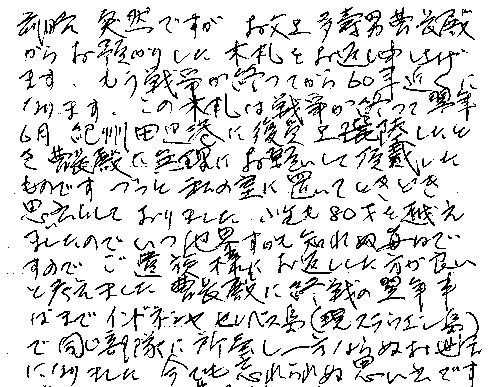 前略 突然ですが お父上 多寿男曹長殿
からお預かりした木札をお返し申し上げ
ます。もう戦争が終ってから60年近くに
なります。この木札は戦争が終って翌年
6月 紀州田辺港に復員上陸したと
き曹長殿に無理にお願いして頂戴した
ものです ずっと私の室に置いてときどき
思い出しておりました 小生も80才を越え
ましたのでいつ他界するかも知れぬ毎日で
すのでご遺族様にお返しした方が良い
と考えました 曹長殿に終戦の翌年
まで インドネシヤ セレベス島(現スラウエシ島)
で同じ部隊に所属し一方ならぬお世話
になりました 今でも忘れられぬ思い出です